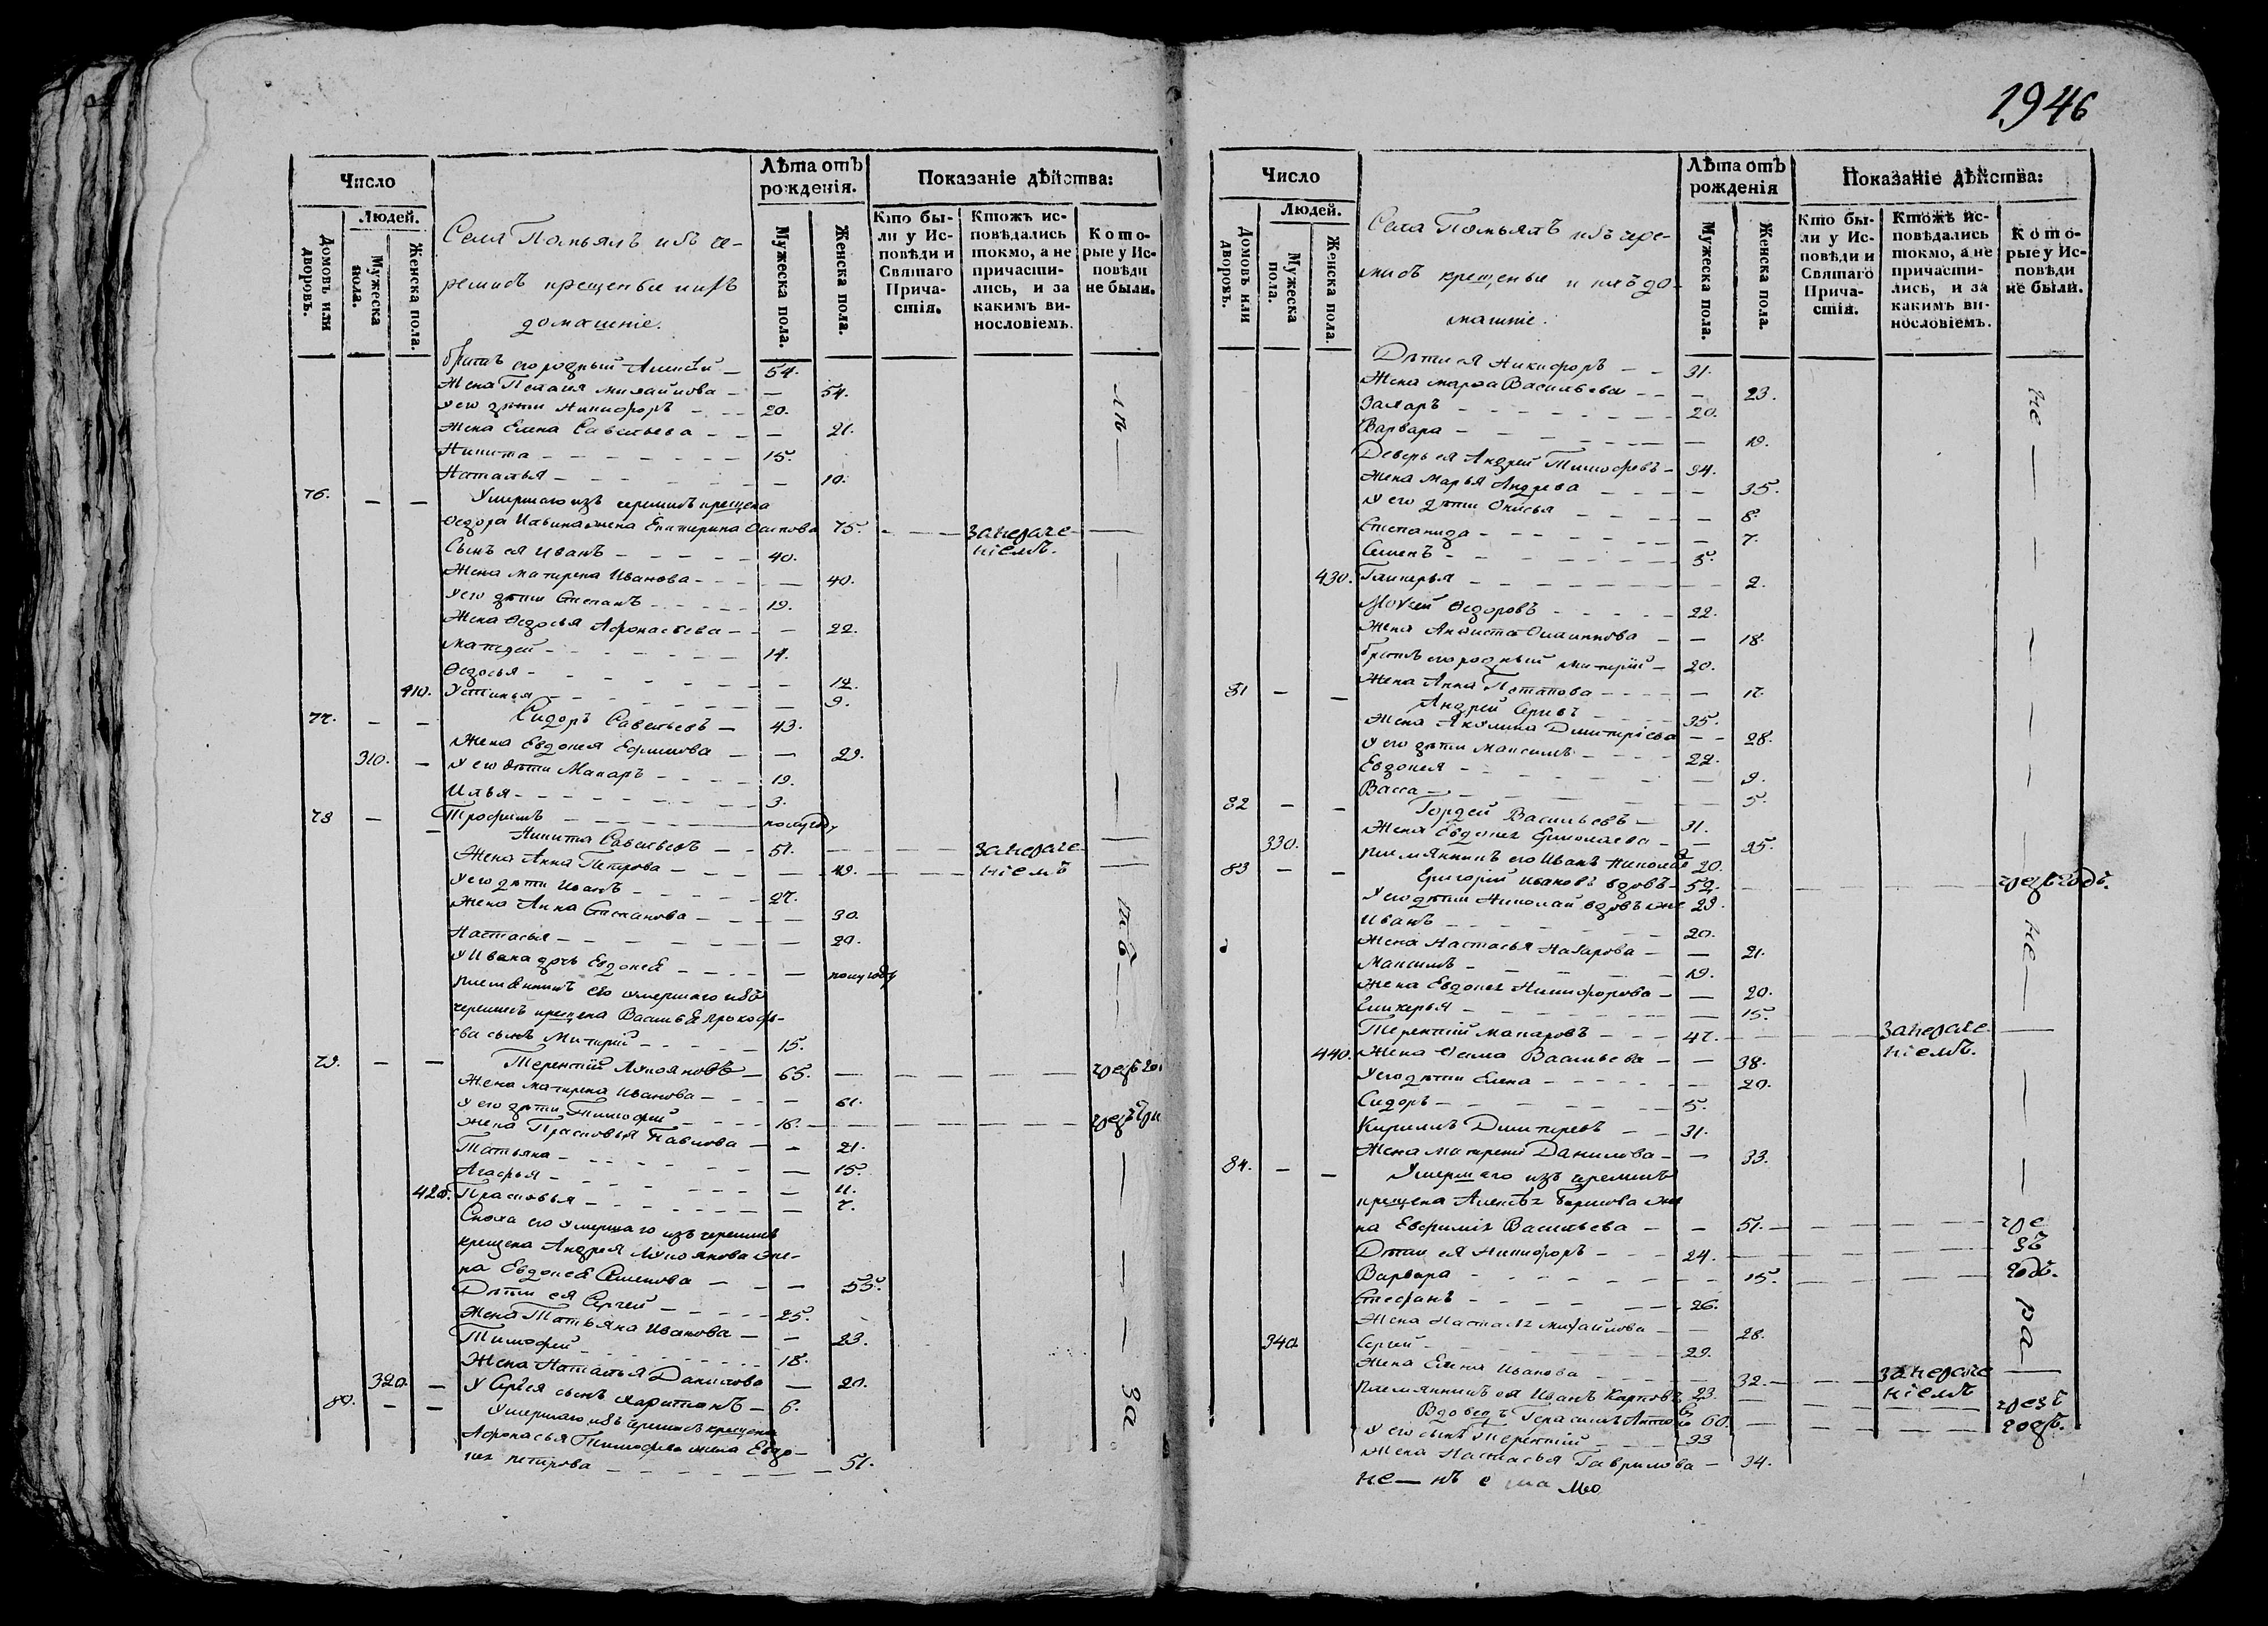 1946
Число
Людей.
Домовъ или дворовъ.
Мужеска пола.
Женска пола.
Села Помьялъ изъ че-
ремисъ крещеные и ихъ
домашніе.
Лѣта отъ рожденія.
Мужеска пола.
Женска пола.
Показаніе дѣйства:
Кто бы-
ли у Ис-
повѣди и
Святаго
Прича-
стія.
Ктожъ ис-
повѣдались
токмо, а не
причасти-
лись, и за
какимъ ви-
нословіемъ.
Кото-
рые у Ис-
повѣди
не были.
братъ его родный Алексѣй — 54.
Жена Пелагея Михайлова — — 54.
У его дѣти Никифоръ — — 20.
Жена Елена Савельева — — — 21.
Никита — 15.
Наталья — — 10.
76. — — Умершаго изъ черемисъ крещена
Ѳедора Ильина жена Екатерина Осипова 75. — — — занераче- —
ніемъ.
Сынъ ея Иванъ — 40.
Жена Матрена Иванова — — 40.
У его дѣти Степанъ — 19.
Жена Ѳедосья Афонасьева — — 22.
Матвей — 14.
Ѳедосья — — 12.
410. Устинья — — 9.
77. — — Сидоръ Савельевъ — 43.
Жена Евдокея Ефимова — — 29.
310. — У его дѣти Макаръ — 19.
Илья — 3.
78 — — Трофимъ — полугоду
Никита Савельевъ — 51. — — занераче- —
Жена Анна Петрова — — 49. — — ніемъ —
У его дѣти Иванъ — 27.
Жена Анна Степанова — — 30.
Настасья — — 20.
У Ивана дочь Евдокея — — полугоду
племянникъ его умершаго изъ
черемисъ крещена Василья Прокофь-
ева сынъ Митрей — 15.
79. — — Терентій Лукояновъ — 65. — — — —
Жена Матрена Иванова — — 61.
У его дѣти Тимофей — 16. — — — —
Жена Прасковья Павлова — — 21.
Татьяна — — 15.
Агафья — — 11.
420. Прасковья — — 7.
Сноха его умершаго изъ черемисъ
крещена Андрея Лукоянова же-
на Евдокея Семенова — — 55.
Дѣти ея Сергей — 25.
Жена Татьяна Иванова — — 23.
Тимофей — 18.
Жена Наталья Данилова — 20.
320. — У Сергея сынъ Харитонъ — 6.
80. — — Умершаго изъ черемисъ крещена
Афонасья Тимофеева жена Евдо-
кея Петрова — 51.
за
Число
Людей.
Домовъ или дворовъ.
Мужеска пола.
Женска пола.
Села Помьялъ изъ чере-
мисъ крещеные и ихъ до-
машніе.
Лѣта отъ рожденія
Мужеска пола.
Женска пола.
Показаніе дѣйства:
Кто бы-
ли у Ис-
повѣди и
Святаго
Прича-
стія.
Ктожъ ис-
повѣдались
токмо, а не
причасти-
лись, и за
какимъ ви-
нословіемъ.
Кото-
рые у Ис-
повѣди
не были.
Дѣти ея Никифоръ — — 31.
Жена Марфа Васильева — — 23.
Захаръ — 20.
Варвара — — 19.
Деверь ея Андрей Тимофеевъ — 34.
Жена Марья Андреева — — 35.
У его дѣти — — 8.
Степанида — — 7.
Семенъ — 5.
430. Гликерья — — 2.
Моусей Ѳедоровъ — 22.
Жена — — 18.
братъ его родный Митрей — 20.
Жена Анна Потапова — — 17.
81 — — Андрей — 35.
Жена Акулина Дмитріева — — 28.
У его дѣти Максимъ — 22.
Евдокея — — 9.
Васса — — 5.
82 — — Гордей Васильевъ — 31.
Жена Евдокея Ермолаева — — 25.
330. племянникъ его Иванъ Николаевъ 20.
83 — — Григорій Ивановъ вдовъ — 52. — — — чрезъ годъ.
У его дѣти Николай вдовъ же 29.
Иванъ — 20.
Жена Настасья Назарова — — 21.
Максимъ — 19.
Жена Евдокея Никифорова — — 20.
Гликерья — — 15.
Терентій Макаровъ — — 47. — — занераче- —
440. Жена Васильева — — 38. ніемъ.
У его дѣти Елена — — 20.
Сидоръ — 5.
Кирилъ Дмитревъ — — 31.
Жена Матрена Данилова — — 33.
84. — — Умершаго изъ черемисъ
крещена Алексѣя Борисова же-
на Евфимія Васильева — — 51. — — — чре
Дѣти ея Никифоръ — 24. — — — зъ
Варвара — — 15. — — — годъ.
Стефанъ — 26.
Жена Настасья Михайлова — — 28.
340. Сергей — 29.
Жена Елена Иванова — — 32. — — занераче —
племянникъ ея Иванъ Карповъ 23. ніемъ
Вдовецъ Герасимъ Антоновъ 60. — — — чрезъ
У его сынъ Терентій — 33 — — — годъ.
Жена Настасья Гаврилова — 34.
ра